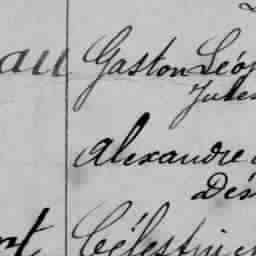 au Gaston Léo
Jules
Alexandre
Dés
Célestin